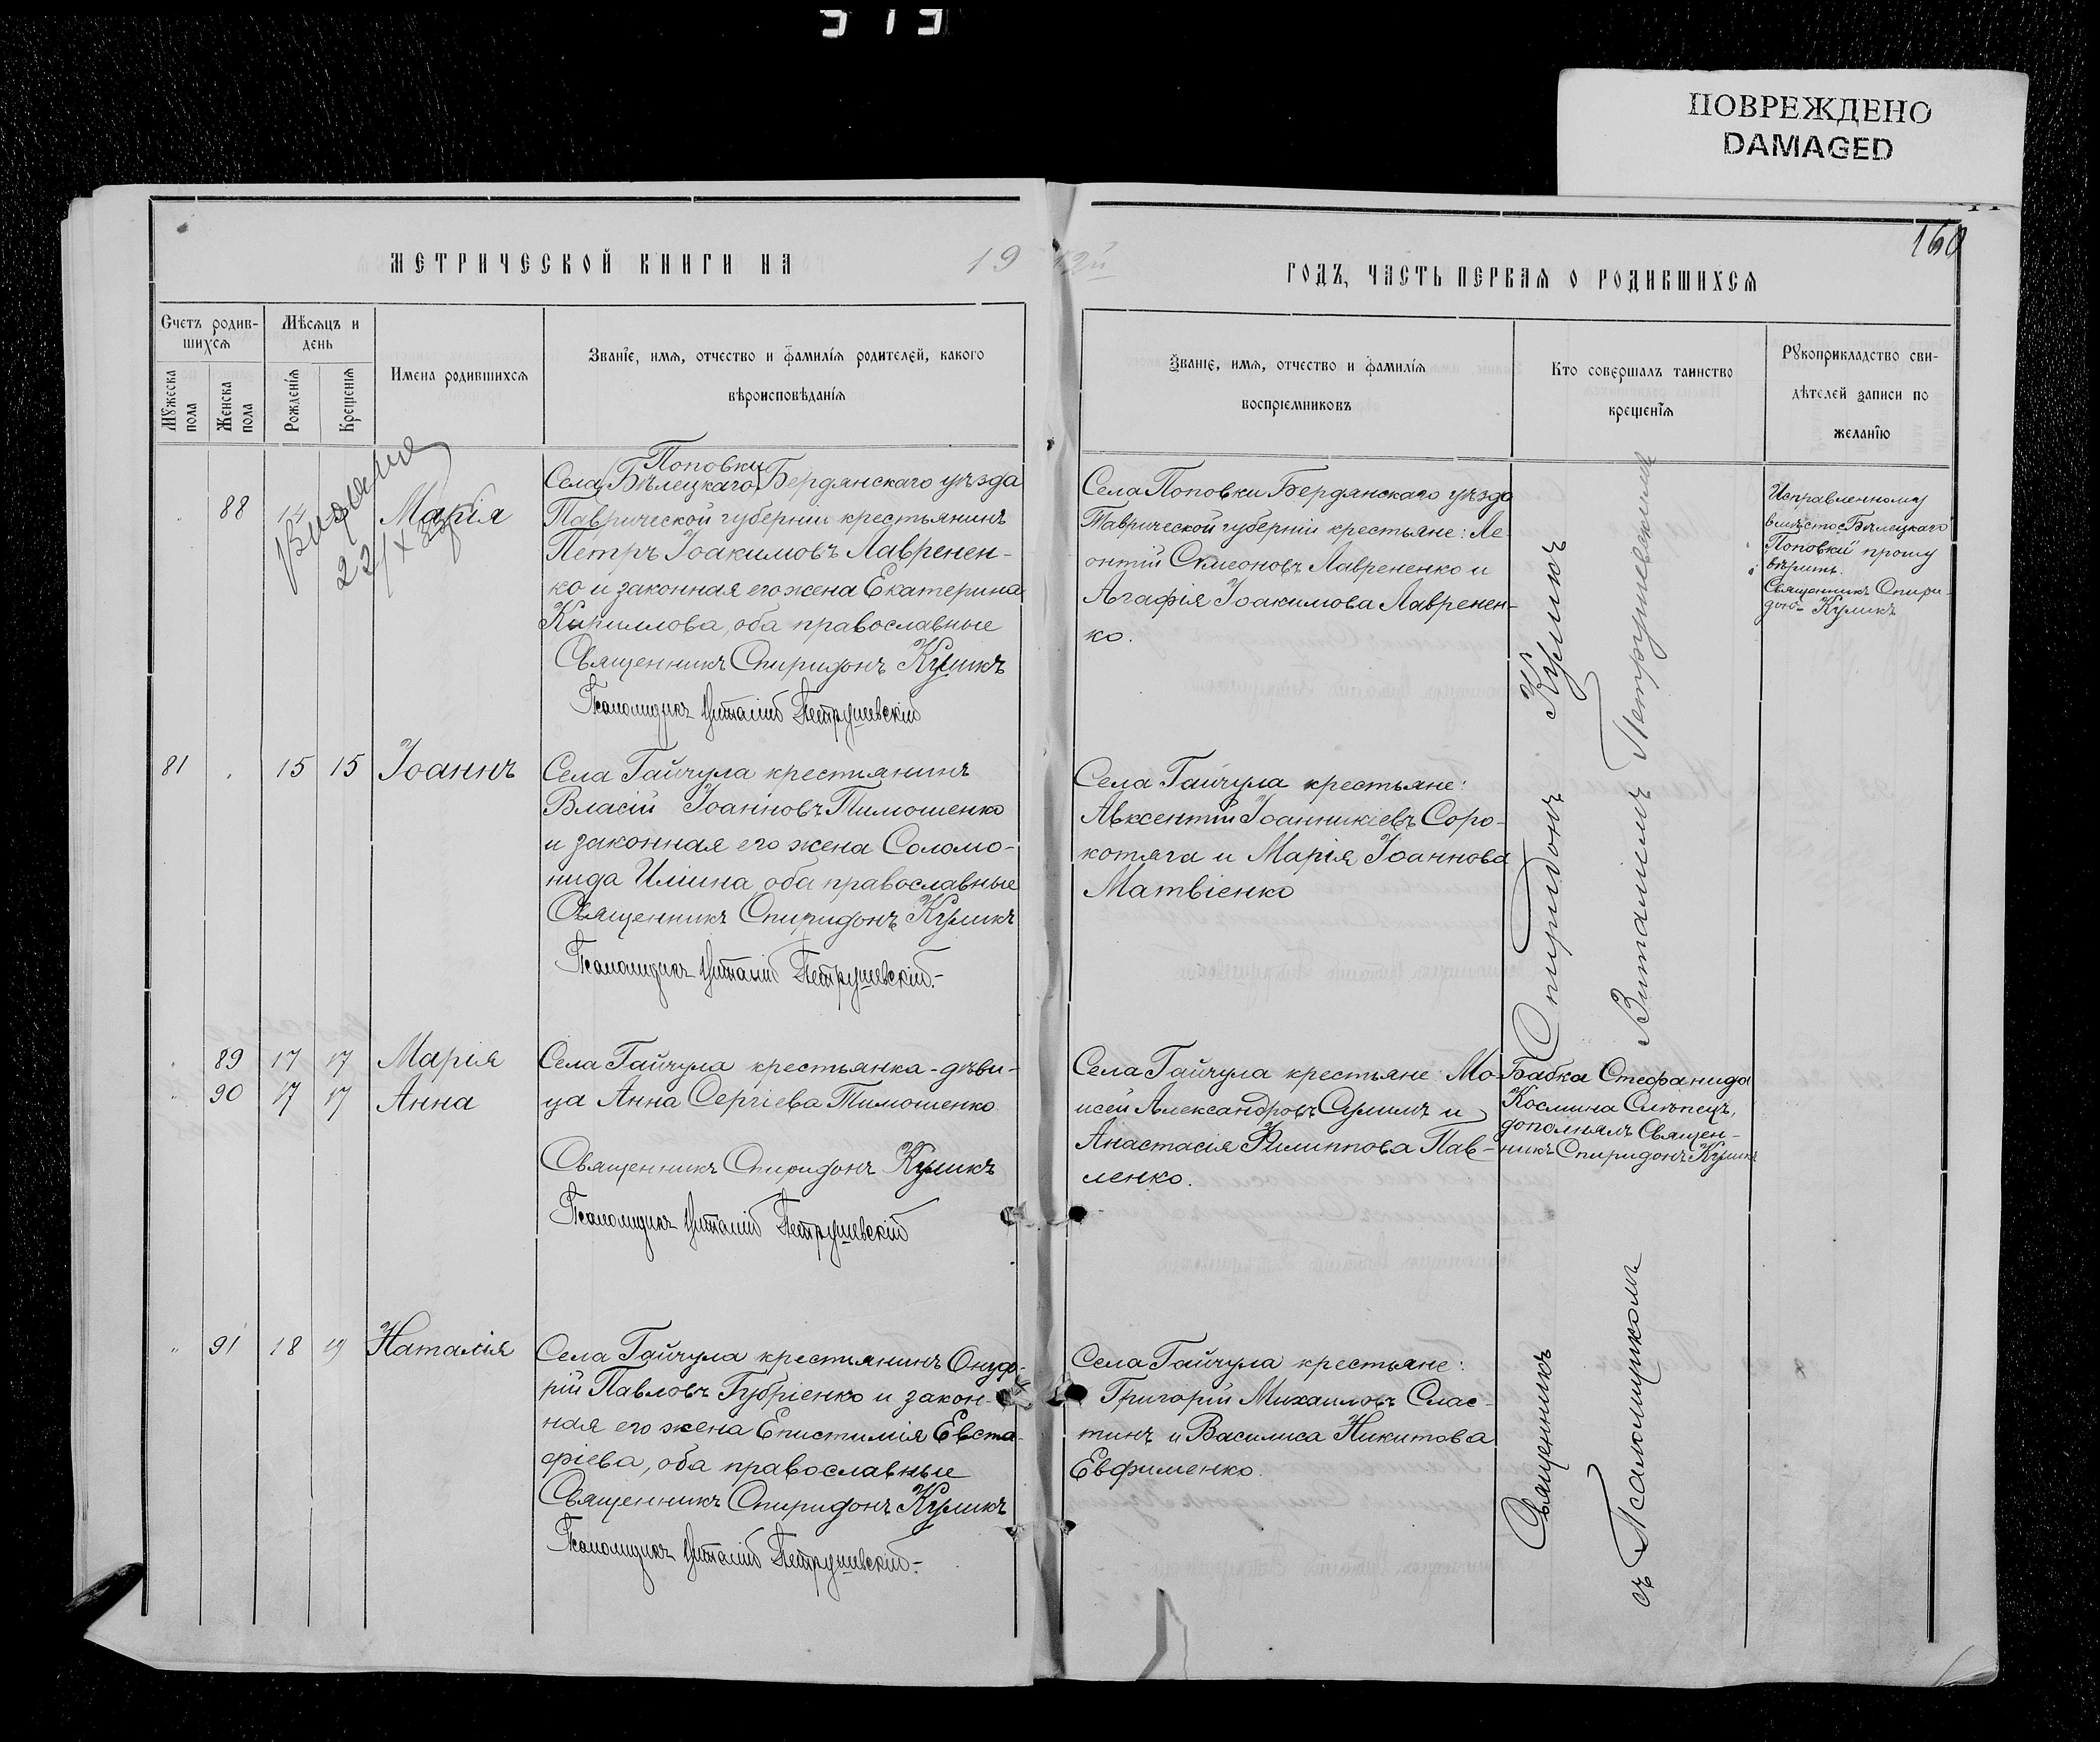 313
ПОВРЕЖДЕНО
DAMAGED
160
МЕТРИЧЕСКОЙ КНИГИ НА 19 12й ГОДЪ, ЧАСТЬ ПЕРВАЯ О РОДИВШИХСЯ
Счетъ родив-
шихся
Мужеска пола
Женска пола
Мѣсяцъ и
день
Рожденія
Крещенія
Имена родившихся
Званіе, имя, отчество и фамилія родителей, какого
вѣроисповѣданія
Званіе, имя, отчество и фамилія
воспріемниковъ
Кто совершалъ таинство
крещенія
Рукоприкладство сви-
дѣтелей записи по
желанію
88 14 Марія
Видано
22/X
Поповки
Села Бѣлецкаго Бердянскаго уѣзда
Таврической губерніи крестьянинъ
Петръ Іоакимовъ Лавренен-
ко и законная его жена Екатерина
Кириллова, оба православные
Священникъ Спиридонъ Куликъ
Псаломщикъ Виталій Петрушевскій
Села Поповки Бердянскаго уѣзда
Таврической губерніи крестьяне: Ле-
онтій Симеоновъ Лавриненко и
Агафія Іоакимова Лавренен-
ко.
Исправленному
вмѣсто "Бѣлецкаго"
"Поповки" прошу
вѣрить.
Священникъ Спири-
донъ Куликъ
81 15 15 Іоаннъ
Села Гайчула крестьянинъ
Власій Іоанновъ Тимошенко
и законная его жена Соломо-
нида Иліина оба православные
Священникъ Спиридонъ Куликъ
Псаломщикъ Виталій Петрушевскій.-
Села Гайчула крестьяне:
Авксентій Іоанникіевъ Соро-
котяга и Марія Іоаннова
Матвіенко
89 17 17 Марія
90 17 17 Анна
Села Гайчула крестьянка-дѣви-
ца Анна Сергіева Тимошенко
Священникъ Спиридонъ Куликъ
Псаломщикъ Виталій Петрушевскій
Села Гайчула крестьяне: Мо-
исей Александровъ Сулимъ и
Анастасія Филиппова Пав-
ленко.
Бабка Стефанида
Космина Слѣпецъ,
дополнялъ Священ-
никъ Спиридонъ Куликъ
" 91 18 19 Наталія
Села Гайчула крестьянинъ Онуф-
рій Павловъ Губріенко и закон-
ная его жена Епистимія Евста-
фіева, оба православные
Священникъ Спиридонъ Куликъ
Псаломщикъ Виталій Петрушевскій.-
Села Гайчула крестьяне:
Григорій Михаиловъ Слас-
тинъ и Василиса Никитова
Евфименко.
Священникъ Спиридонъ Куликъ
съ Псаломщикомъ Виталіемъ Петрушевскимъ